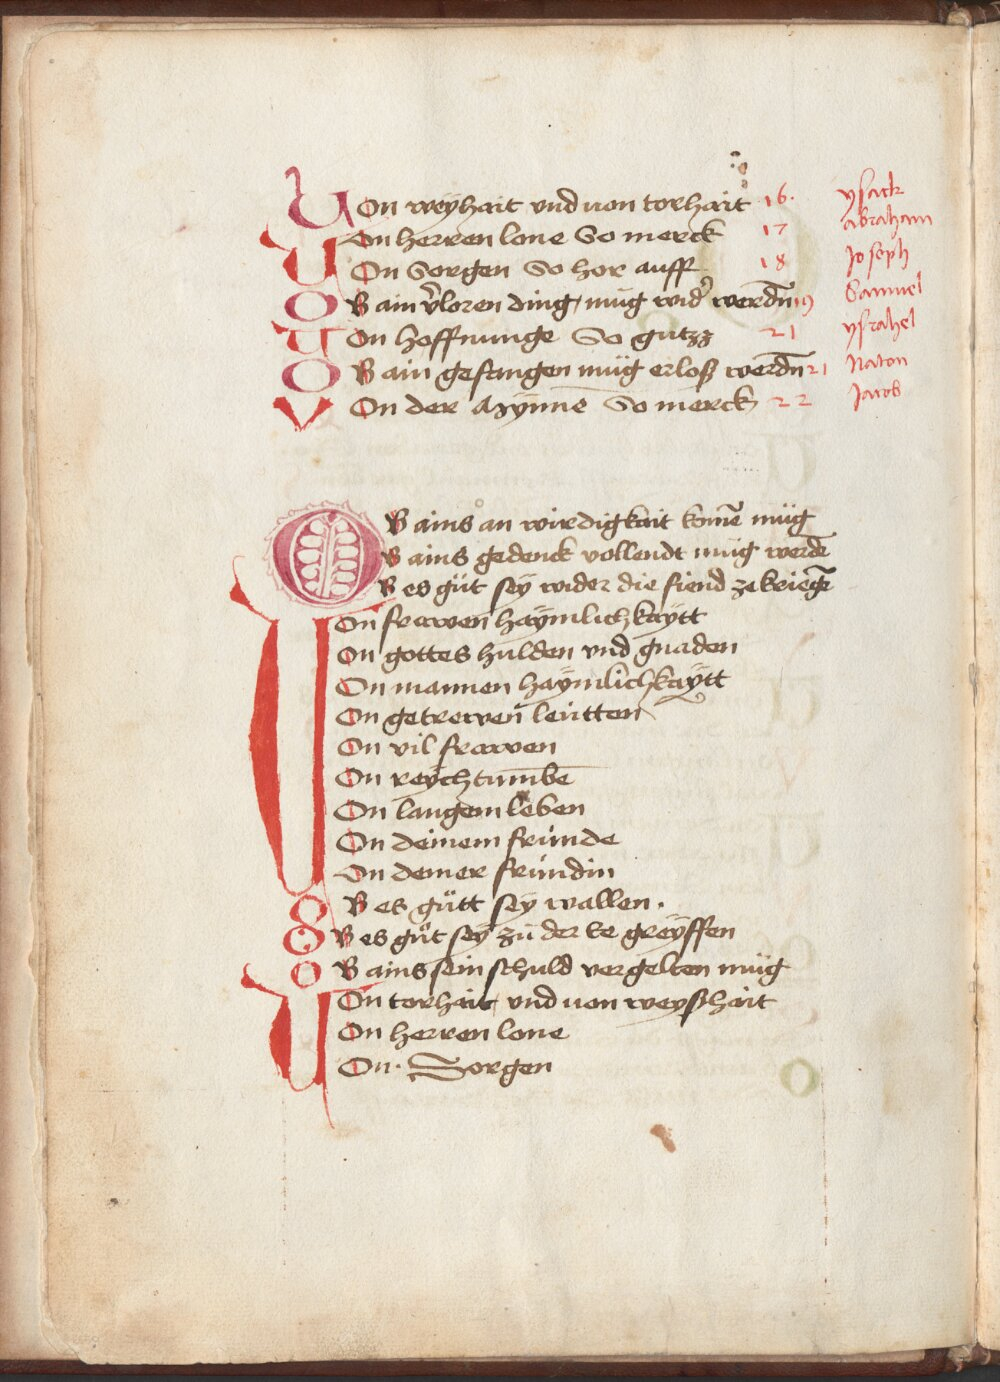 Uon weyhait vnd uon torhait 16. ysack
Uon herren lone So merck 17 abraham
Uon Sorgen So hor auff 18 Joseph
OB ain v̉loren ding mug wid̉ werdn̄ 19 Samuel
Uon hoffnunge So gutzz 21 ysrahel
OB ain gefangen müg erlosz werdn̄ 21 Naton
VOn der Mÿnne So merck 22 Jacob
OB ains an wirdigkait kome̅ müg
OB ains gedenck vollendt müg werde̅
OB es güt seÿ wider die fiend ze kriege̅
UOn frawen haÿmlichkaÿtt
On gottes hulden vnd gnaden
On mannen haÿmlichkaÿtt
On getrewen leütten
On vil frawen
On reÿchtumbe
On langem leben
On deinem fründe
On deiner fründin
OB es gütt seÿ wallen.
OB es güt seÿ zu der ee greÿffen
OB ains sein schuld vergelten müg
UOn torhait vnd uon weyszhait
On herren lone
On. Sorgen